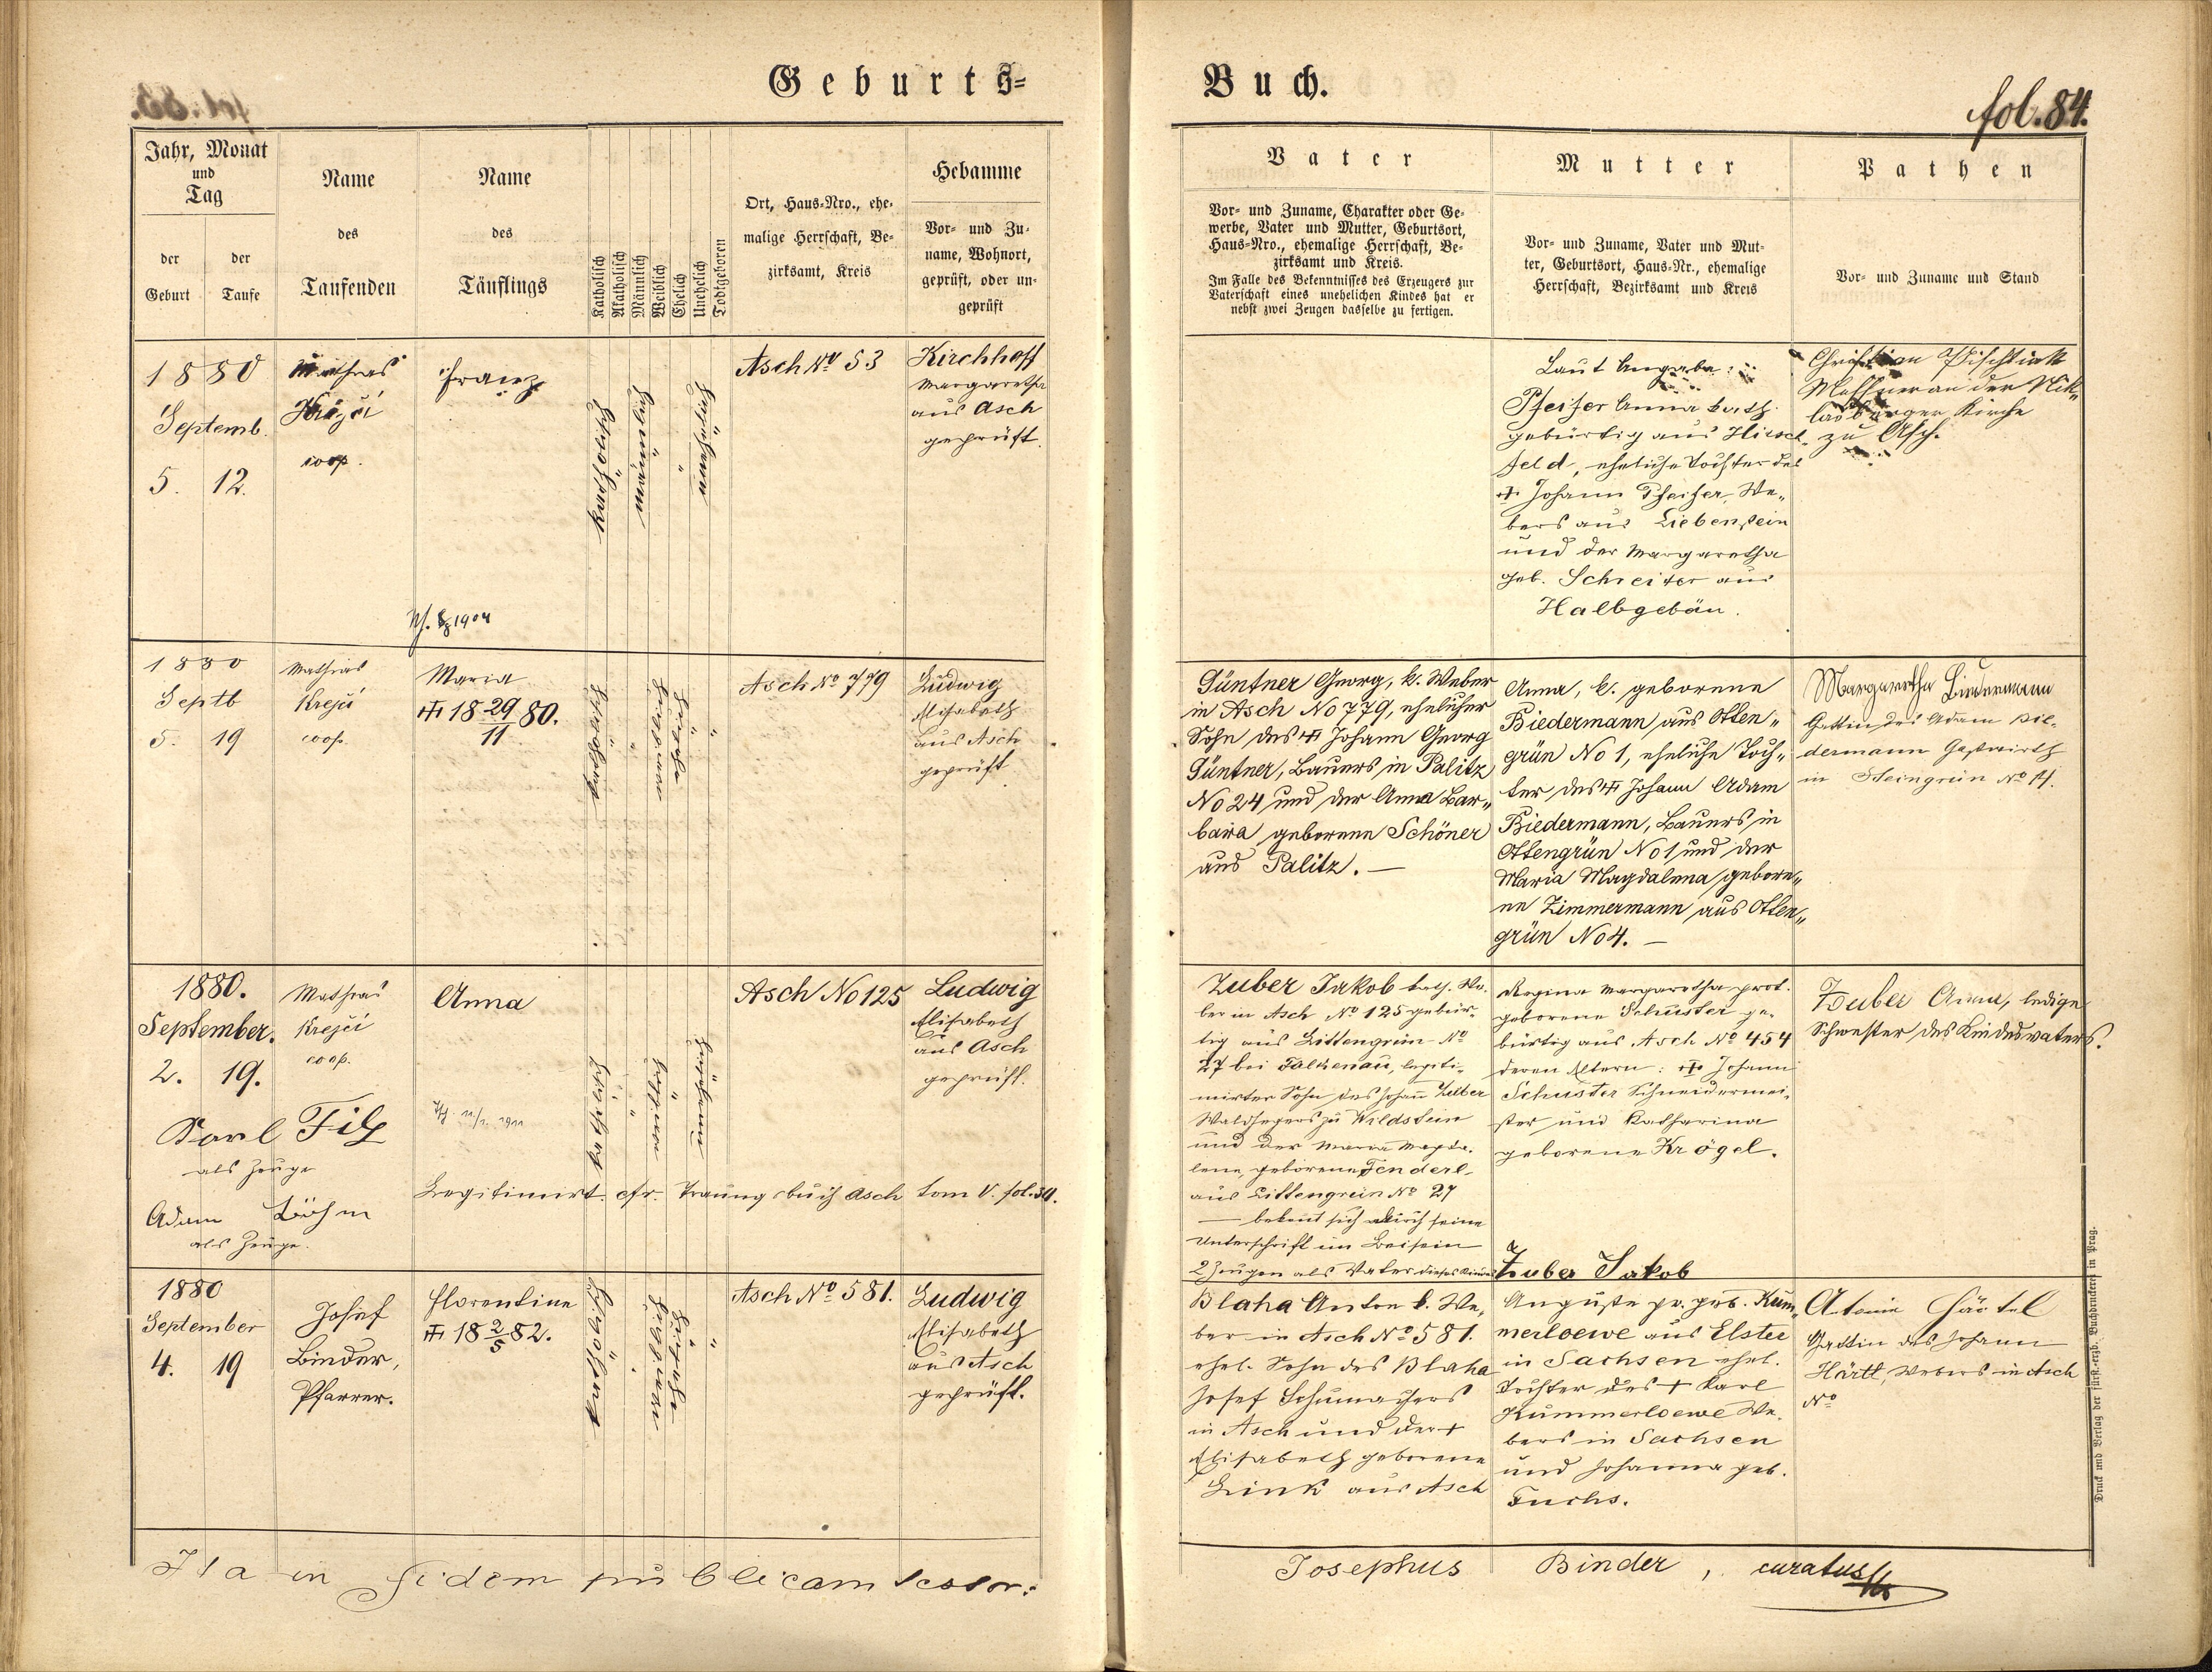 Geburts=
Buch.
fol. 84.
Jahr, Monat
und
Tag
der
Geburt
der
Taufe
Name
des
Taufenden
Name
des
Täuflings
Katholisch
Akatholisch
Männlich
Weiblich
Ehelich
Unehelich
Todtgeboren
Ort, Haus-Nro., ehe-
malige Herrschaft, Be-
zirksamt, Kreis
Hebamme
Vor- und Zu-
name, Wohnort,
geprüft, oder un-
geprüft
Vater
Vor- und Zuname, Charakter oder Ge-
werbe, Vater und Mutter, Geburtsort,
Haus-Nro., ehemalige Herrschaft, Be-
zirksamt und Kreis.
Im Falle des Bekenntnisses des Erzeugers zur
Vaterschaft eines unehelichen Kindes hat er
nebst zwei Zeugen dasselbe zu fertigen.
Mutter
Vor- und Zuname, Vater und Mut-
ter, Geburtsort, Haus-Nr., ehemalige
Herrschaft, Bezirksamt und Kreis
Pathen
Vor- und Zuname und Stand
1880
Septemb.
5. 12.
Mathias
Krejčí
coop.
Franz
1904
katholisch
männlich
unehelich
Asch No 53
Kirchhoff
Margaretha
aus Asch
geprüft.
Laut Angabe:
Pfeifer Anna kath.
gebürtig aus Hirsch-
feld, eheliche Tochter des
† Johann Pfeifer, We-
bers aus Liebenstein
und der Margaretha
geb. Schreiter aus
Halbgebäu.
Christian
Meßner an der Nik-
lasberger Kirche
zu Asch.
1880
Septb
5. 19
Mathias
Krejčí
coop.
Maria
† 18 29/11 80.
katholisch
weiblich
ehelich
Asch No 779
Ludwig
Elisabeth
aus Asch
geprüft
Güntner Georg, k. Weber
in Asch No 779, ehelicher
Sohn des † Johann Georg
Güntner, Bauers in Palitz
No 24 und der Anna Bar-
bara geborene Schöner
aus Palitz. —
Anna, k. geborene
Biedermann aus Otten-
grün No 1, eheliche Toch-
ter des † Johann Adam
Biedermann, Bauers in
Ottengrün No 1 und der
Maria Magdalena gebore-
ne Zimmermann aus Otten-
grün No 4. —
Margaretha Biedermann
Gattin des Adam Bie-
dermann Gastwirth
in Steingrün No 14.
1880.
September.
2. 19.
Mathias
Krejčí
coop.
Karl Filz
als Zeuge
Adam Böhm
als Zeuge.
Anna
1911
katholisch
weiblich
unehelich
Legitimirt cfr. Trauungsbuch Asch tom V. fol. 30.
Asch No 125
Ludwig
Elisabeth
aus Asch
geprüft.
Zuber Jakob kath. We-
ber in Asch No 125 gebür-
tig aus Littengrün No
27 bei Falkenau, legiti-
mirter Sohn des Johann Zuber
Waldhegers zu Wildstein
und der Maria Magda-
lena, geborene Fenderl
aus Littengrün No 27
— bekent sich durch seine
Unterschrift im Beisein
2 Zeugen als Vater dieses Kindes
Zuber Jakob
Regina Margaretha prot.
geborene Schuster ge-
bürtig aus Asch No 454
deren Eltern: † Johann
Schuster Schneidermei-
ster und Katharina
geborene Krögel.
Zuber Anna, ledige
Schwester des Kindesvaters.
1880
September
4. 19
Josef
Binder,
Pfarrer.
Florentine
† 18 2/5 82.
katholisch
weiblich
ehelich
Asch No 581.
Ludwig
Elisabeth
aus Asch
geprüft.
Blaha Anton k. We-
ber in Asch No 581.
ehel. Sohn des Blaha
Josef Schumachers
in Asch und der †
Elisabeth geborene
Link aus Asch
Auguste pr. geb. Kum-
merloewe aus Elster
in Sachsen ehel.
Tochter des † Karl
Kummerloewe We-
bers in Sachsen
und Johanna geb.
Fuchs.
Gattin des Johann
Härtl, Webers in Asch
No
Ita in fidem publicam testor:
Josephus Binder, curatus
Druck und Verlag der fürst.-erzb. Buchdruckerei in Prag.